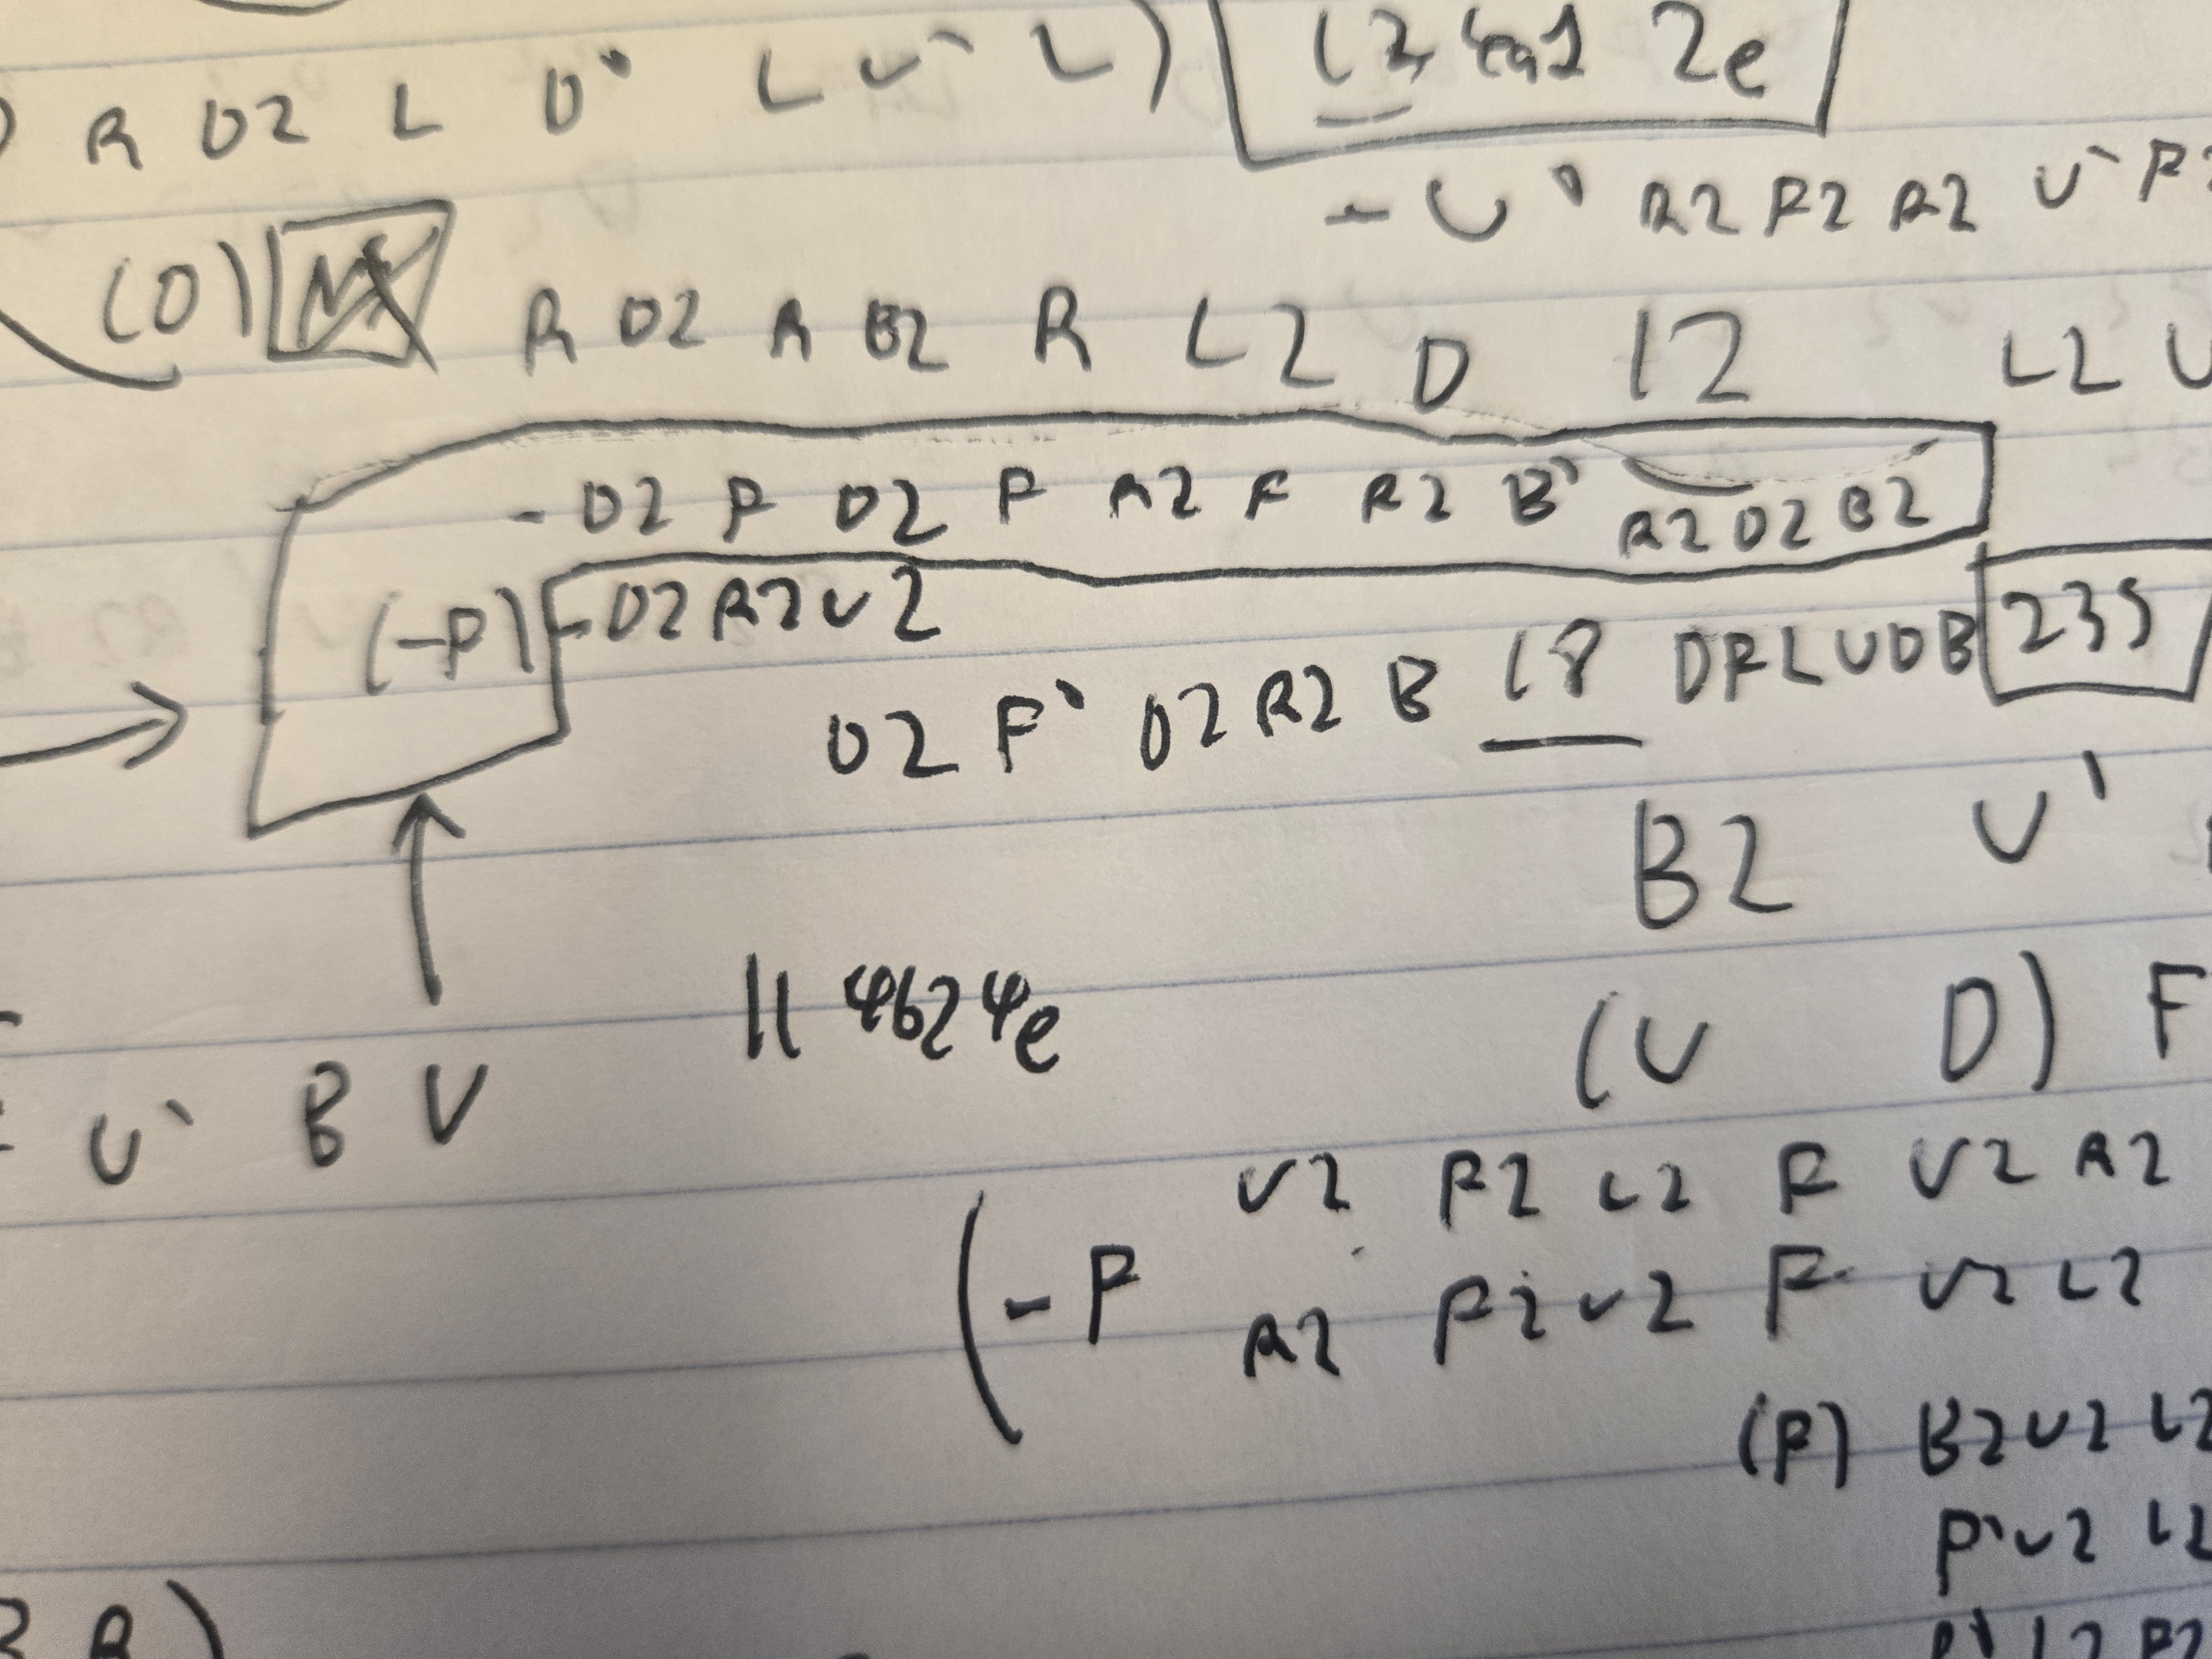 R D2 L D' L U' L) 12 4a1 2e
- U' R2 F2 R2 U'
(D) R D2 R B2 R L2 D 12 L2 U
- D2 F D2 F R2 F R2 B' R2 D2 B2
(-F) - D2 R2 U2
D2 F' D2 R2 B 18 DFLUDB 235
B2 U'
11 4b24e (U D) F
U' B U
U2 F2 L2 F U2 R2
(-F R2 F2 U2 F U2 L2
(F) B2 U2 L2
F' U2 L2
R)